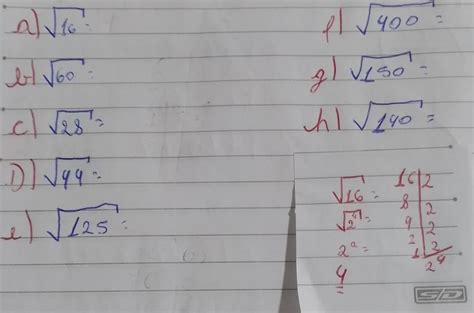 a) √16 =
b) √60 =
c) √28 =
D) √44 =
e) √125 =
f) √400 =
g) √150 =
h) √140 =
√16 =
√2⁴ =
2² =
4
16 | 2
8 | 2
4 | 2
2 | 2
1 | 2⁴